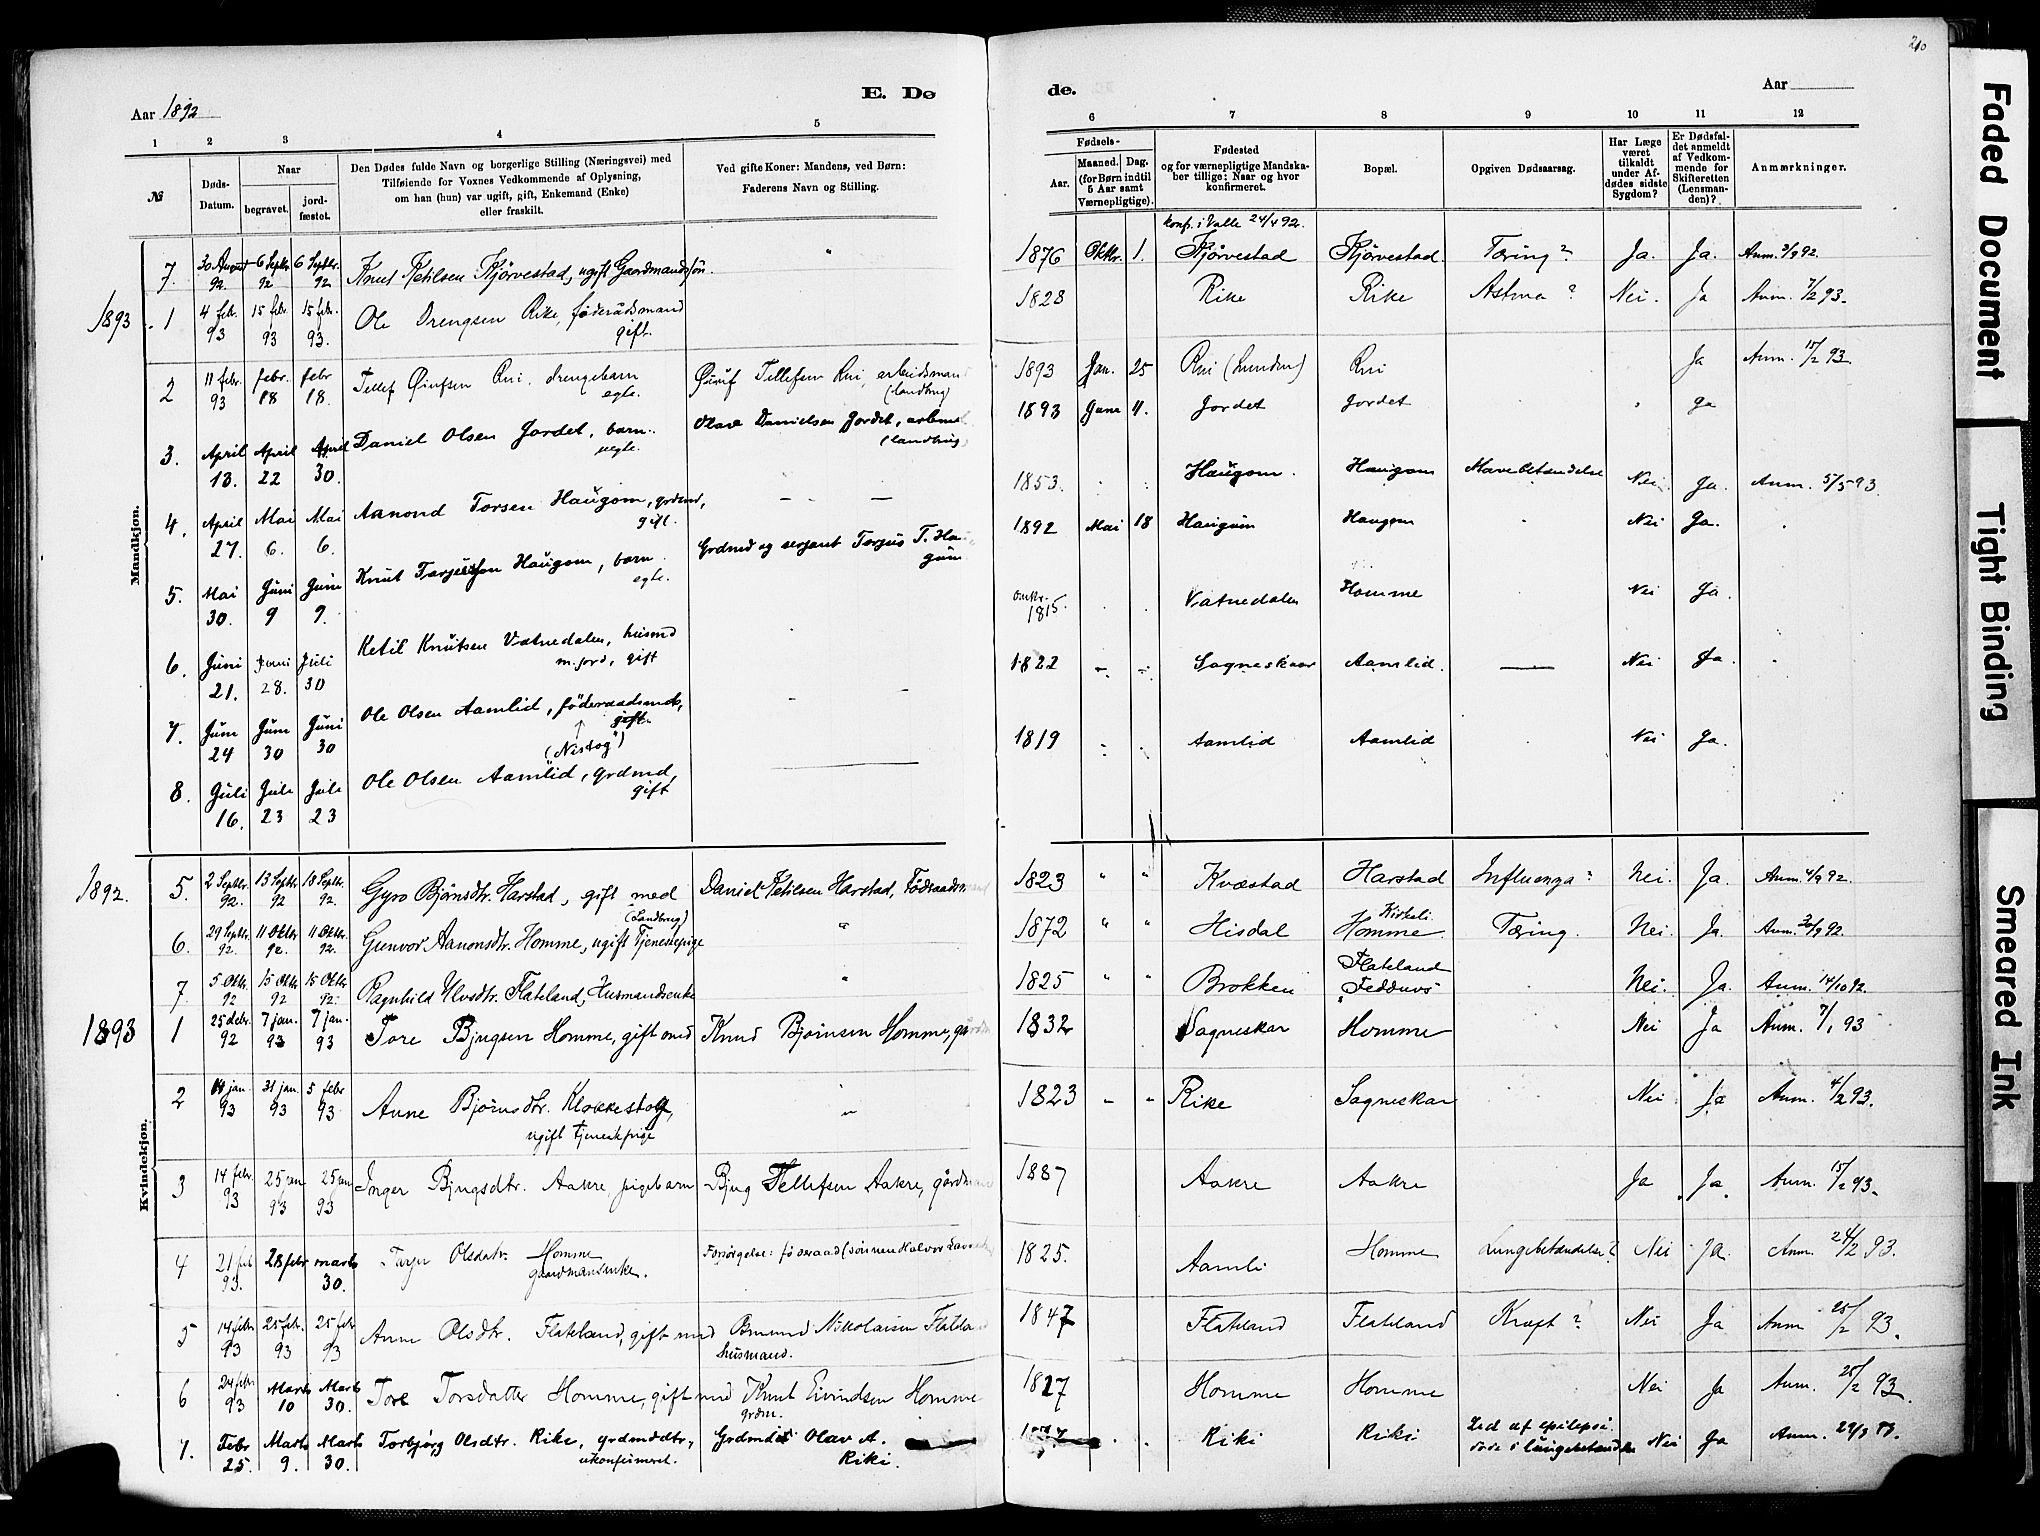 210
E. Dø
de.
Aar 1892
Aar
1 2 3 4 5 6 7 8 9 10 11 12
№
Døds-Datum.
Naar
begravet.
jord-fæstet.
Den Dødes fulde Navn og borgerlige Stilling (Næringsvei) med
Tilføiende for Voxnes Vedkommende af Oplysning,
om han (hun) var ugift, gift, Enkemand (Enke)
eller fraskilt.
Ved gifte Koner: Mandens, ved Børn:
Faderens Navn og Stilling.
Fødsels-
Aar.
Maaned. Dag.
(for Børn indtil
5 Aar samt
Værnepligtige).
Fødested
og for værnepligtige Mandska-
ber tillige: Naar og hvor
konfirmeret.
Bopæl.
Opgiven Dødsaarsag.
Har Læge
været
tilkaldt
under Af-
dødes sidste
Sygdom?
Er Dødsfal-
det anmeldt
af Vedkom-
mende for
Skifteretten
(Lensman-
den)?
Anmærkninger.
Mandkjøn.
konf. i Valle 24/4 92.
7. 30 August 92. 6 Septbr. 92 6 Septbr. 92 Knut Ketilsen Kjörvestad, ugift Gaardmandssön. " 1876 Oktbr. 1. Kjörvestad Kjörvestad. Tæring? Ja. Ja. Anm. 3/9 92.
1893 1 4 febr. 93 15 febr. 93 15 febr. 93. Ole Drengsen Rike, föderådsmand gift. 1828 Rike Rike Astma? Nei. Ja Anm. 7/2 93.
2 11 febr. 93 febr. 18 febr 18. Tellef Öiufsen Rui, drengebarn egte. Öiuf Tellefsen Rui, arbeidsman (landbrug) 1893 Jan. 25 Rui (Lunden) Rui Ja Anm. 15/2 93.
3. April 13. April 22 April 30. Daniel Olsen Jordet, barn. uegte. Olav Danielsen Jordet, arbmd (landbrug) 1893 Janr 11. Jordet Jordet Ja
4. April 27. Mai 6. Mai 6. Aanond Torsen Haugom, grdmd, gift. — — 1853. Haugom. Haugom Mavebetændelse Nei Ja. Anm. 5/5 93.
5. Mai 30. Juni 9 Juni 9. Knut Torjussen Haugom, barn egte. Grdmd og serjant Torjus T. Haugum 1892 Mai 18 Haugum Haugom Nei Ja.
6. Juni 21. Juni 28. Juli 30 Ketil Knutsen Vatnedalen, husmd m. jord, gift omkr. 1815. Vatnedalen Homme Nei Ja.
7. Juni 24 Juni 30 Juni 30 Ole Olsen Aamlid, föderaadsmd, gift. (Nistog) 1822 Sagneskaar Aamlid. — Nei Ja.
8. Juli 16. Juli 23 Juli 23 Ole Olsen Aamlid, grdmd, gift — 1819 Aamlid Aamlid Nei Ja.
Kvindekjøn.
1892. 5. 2 Septbr. 92. 13 Septbr 92 18 Septbr. 92. Gyro Bjørnsdtr. Harstad, gift med Daniel Ketilsen Harstad, Föderaadsmand (Landbrug) 1823 " " Kvæstad Harstad Influenza? Nei. Ja. Anm. 4/9 92.
6. 29 Septbr. 92 11 Oktbr 92. 11 Oktbr. 92. Gunvor Aanonsdtr. Homme, ugift Tjenestepige " 1872 " " Hisdal Kirkeli Homme. Tæring. Nei. Ja. Anm. 30/9 92.
7 5 Oktbr. 92 15 Oktbr 92 15 Oktbr 92. Ragnhild Ulvsdtr. Flateland, Husmandsenke " 1825 " " Brokken Flateland Nei. Ja. Anm. 14/10 92.
1893 1 25 debr. 92 7 jan. 93 7 jan. 93 Tore Bjugsen Homme, gift med Knud Bjørnsen Homme, 1832 Sagneskar Homme Nei Ja Anm. 7/1 93
2 jan. 93 31 jan. 93 5 febr 93. Anne Björnsdtr. Klokkestog, ugift tjenestpige " 1823 " " Rike Sagneskar Nei Ja Anm. 4/2 93.
3 14 febr. 93 25 jan 93 25 jan 93 Inger Bjugsdtr. Aakre, pigebarn Bjug Tellefsen Aakre, 1887 Aakre Aakre Ja Ja. Anm. 15/2 93.
4 21 feb 93. 28 febr marts 30. Targer Olsdatr. Homme gaardmansenke. Forsörgelse: föderaad (sönnen Halvor 1825. Aamli Homme Lungebetændelse? Nei Ja. Anm. 24/2 93.
5 14 febr 93 25 febr. 93 25 febr 93 Anne Olsdtr. Flateland, gift med Omund Nikolaisen Flateland husmand. 1847 Flateland Flateland Kræft? Nei Ja Anm 25/2 93.
6 24 febr 93 Marts 10 Marts 30. Tore Torsdatter Homme, gift med Knut Eivindsen Homme grdm. 1827 Homme Homme Nei Ja Anm. 25/2 93.
7. Febr 25. Marts 9. Marts 30. Torbjörg Olsdtr. Rike, grdmddtr, ukonfirmeret. Grdmd Olav A. Riki. Riki Riki Led af epilepsi. döde i lungebetændelse Nei Ja Anm.
Faded Document
Tight Binding
Smeared Ink